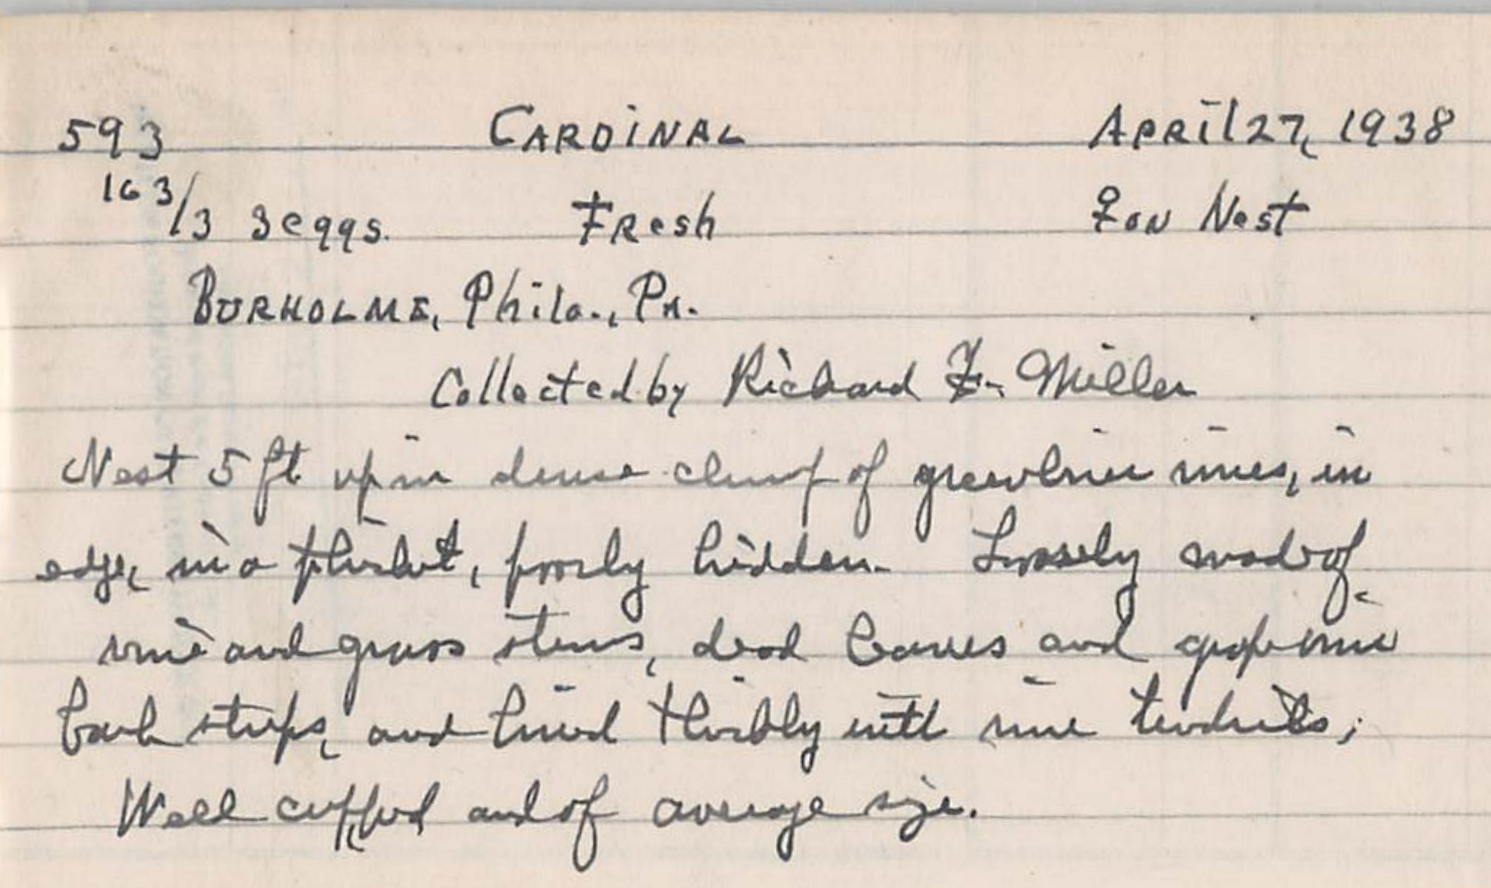 593 CARDINAL APRil 27, 1938
163/3 3 eggs. FResh ♀ ON Nest
BURHOLME, Phila., PA.
Collected by Richard F. Miller
Nest 5 ft up in dense clump of greenbrier vines, in
edge, in a thicket, poorly hidden. Loosely made of
vine and grass stems, dead leaves and grape vine
bark strips, and lined thickly with vine tendrils;
Well cupped and of average size.